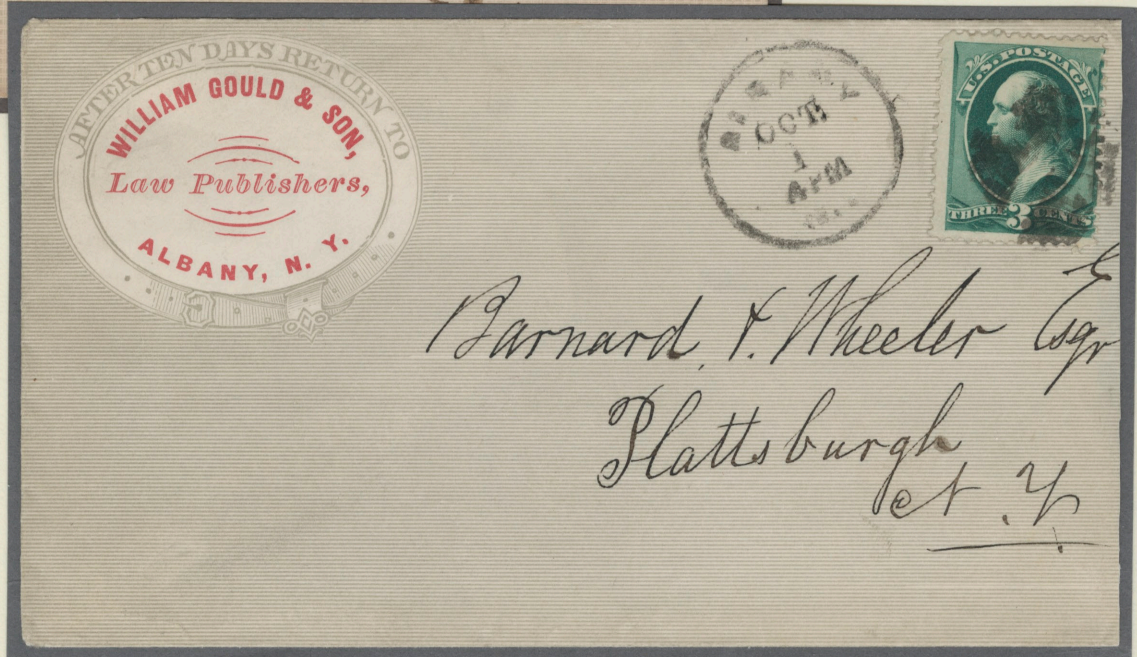 AFTER TEN DAYS RETURN TO
WILLIAM GOULD & SON,
Law Publishers,
ALBANY, N. Y.
ALBANY
OCT
1
4 PM
U.S. POSTAGE
THREE 3 CENTS
Barnard & Wheeler Esqr
Plattsburgh
N. Y.